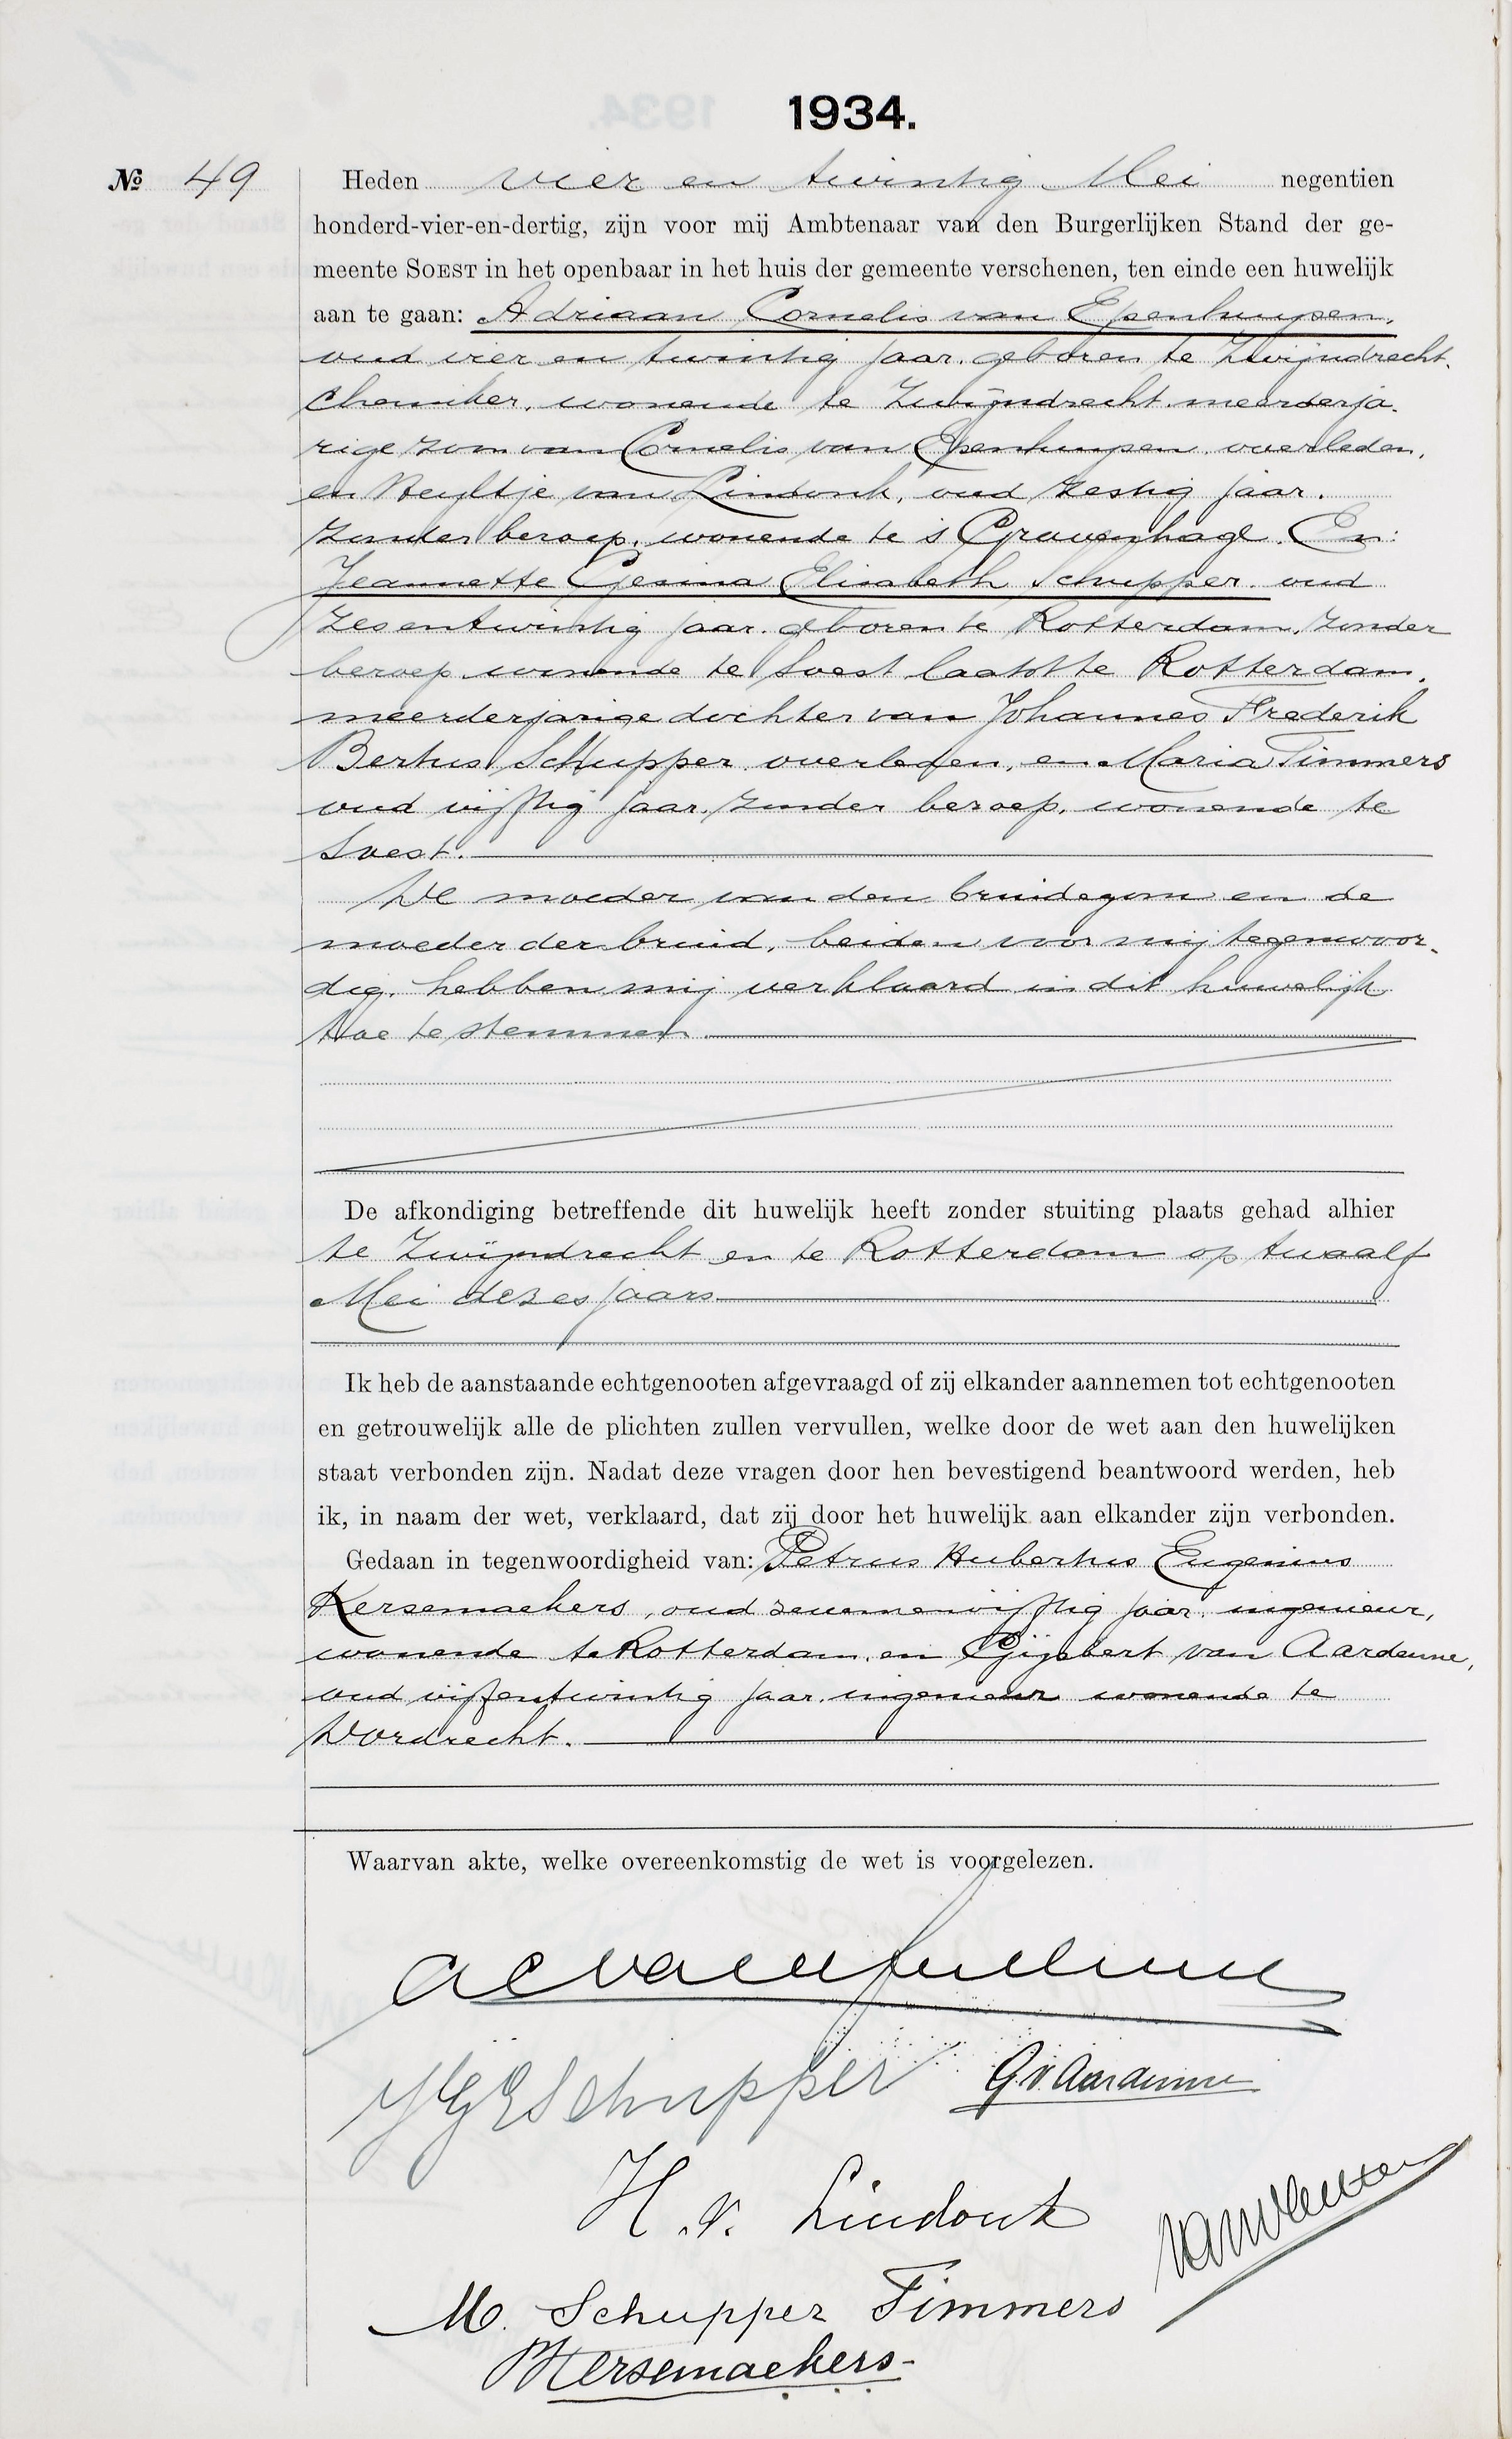 1934.
№ 49 Heden vier en twintig Mei negentien
honderd-vier-en-dertig, zijn voor mij Ambtenaar van den Burgerlijken Stand der ge-
meente SOEST in het openbaar in het huis der gemeente verschenen, ten einde een huwelijk
aan te gaan: Adriaan Cornelis van Epenhuysen,
oud vier en twintig jaar, geboren te Zwijndrecht,
chemiker, wonende te Zwijndrecht, meerderja-
rige zoon van Cornelis van Epenhuysen, overleden,
en Heyltje van Lindonk, oud zestig jaar,
zonder beroep, wonende te 's Gravenhage. En:
Jeannette Gesina Elisabeth Schupper oud
zesentwintig jaar, geboren te Rotterdam, zonder
beroep wonende te Soest laatst te Rotterdam,
meerderjarige dochter van Johannes Frederik
Bertus Schupper overleden, en Maria Timmers
oud vijftig jaar, zonder beroep, wonende te
Soest.
De moeder van den bruidegom en de
moeder der bruid, beiden voor mij tegenwoor-
dig, hebben mij verklaard in dit huwelijk
toe te stemmen
De afkondiging betreffende dit huwelijk heeft zonder stuiting plaats gehad alhier
te Zwijndrecht en te Rotterdam op twaalf
Mei dezes jaars
Ik heb de aanstaande echtgenooten afgevraagd of zij elkander aannemen tot echtgenooten
en getrouwelijk alle de plichten zullen vervullen, welke door de wet aan den huwelijken
staat verbonden zijn. Nadat deze vragen door hen bevestigend beantwoord werden, heb
ik, in naam der wet, verklaard, dat zij door het huwelijk aan elkander zijn verbonden.
Gedaan in tegenwoordigheid van: Petrus Hubertus Eugenius
Kersemaekers, oud zevenenvijftig jaar, ingenieur,
wonende te Rotterdam, en Gijsbert van Aardenne,
oud vijfentwintig jaar, ingenieur wonende te
Dordrecht.
Waarvan akte, welke overeenkomstig de wet is voorgelezen.
JGE Schupper G. v. Aardenne
H. v. Lindonk
M. Schupper Timmers
Kersemaekers